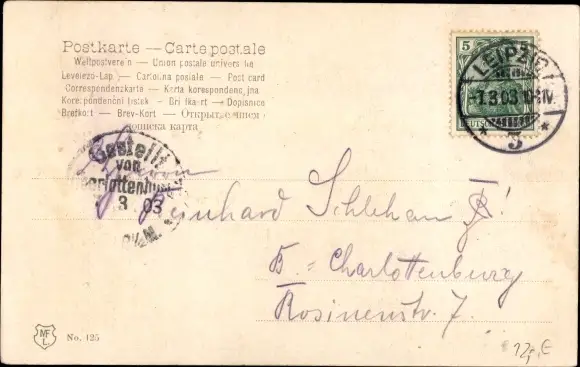 Postkarte — Carte postale
Weltpostverein — Union postale universelle
Levelező-Lap — Cartolina postale — Post card
Correspondenzkarte — Karta korespondencyjna
Korespondenční lístek — Dopisnice
Brefkort — Brev-Kort — Открытое письмо
5
LEIPZIG
1.3.03
3
Bestellt
von
Charlottenburg
3 03
Herrn
Bernhard
B. = Charlottenburg
Rosinenstr. 7.
M.F.
L.
No. 125
12,- €